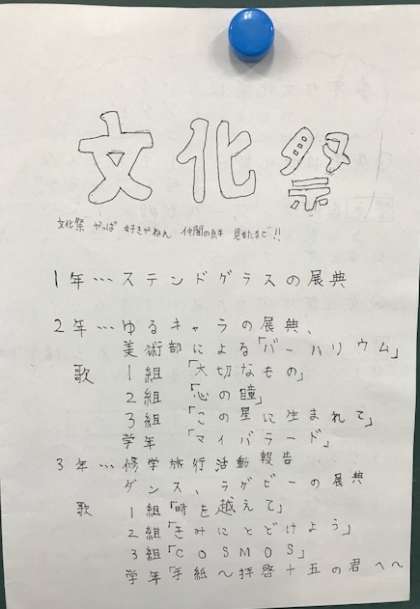 文化祭
文化祭 やっぱ 好きやねん 仲間の絆 見せたるで!!
1年…ステンドグラスの展典
2年…ゆるキャラの展典、
美術部による「バーハリウム」
歌 1組「大切なもの」
2組「心の瞳」
3組「この星に生まれて」
学年「マイバラード」
3年…修学旅行活動報告
ダンス、ラグビーの展典
歌 1組「時を越えて」
2組「きみにとどけよう」
3組「COSMOS」
学年「手紙～拝啓十五の君へ～